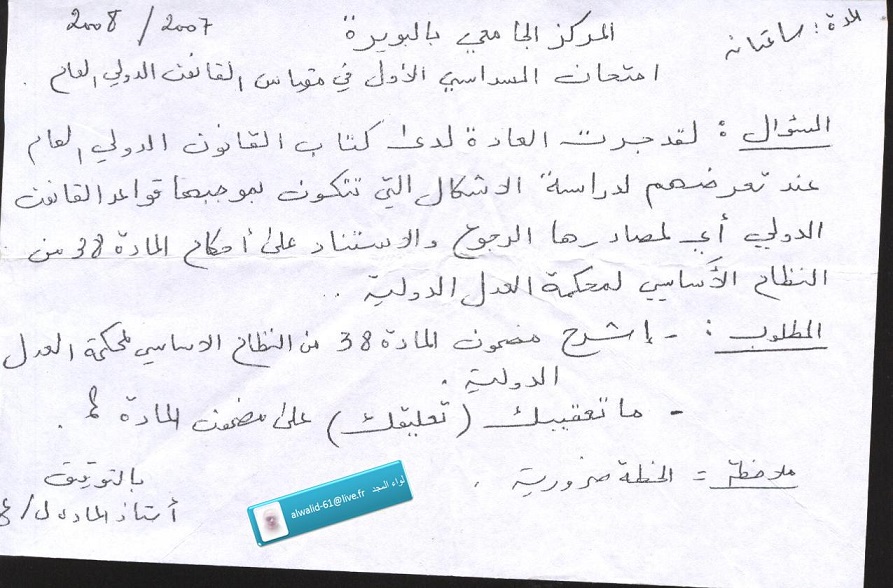 المدة : ساعتان
2008 / 2007
المركز الجامعي بالبويرة
امتحان السداسي الأول في مقياس القانون الدولي العام .
السؤال : لقد جرت العادة لدى كتاب القانون الدولي العام
عند تعرضهم لدراسة الاشكال التي تتكون بموجبها قواعد القانون
الدولي أي لمصادرها الرجوع والاستناد على أحكام المادة 38 من
النظام الأساسي لمحكمة العدل الدولية ..
المطلوب : - إشرح مضمون المادة 38 من النظام الاساسي لمحكمة العدل
الدولية .
- ما تعقيبك ( تعليقك ) على مضمون المادة ؟ .
ملاحظة = الخطة ضرورية .
بالتوفيق
أستاذ المادة
لواء المجد alwalid-61@live.fr